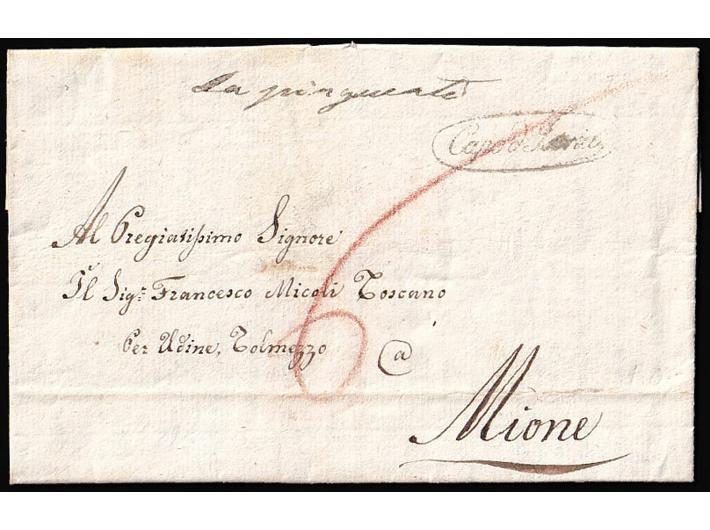 Capo d'Istria
Al Pregiatissimo Signore
Il Sig.r Francesco Micoli Toscano
Per Udine, Tolmezzo a
Mione
6